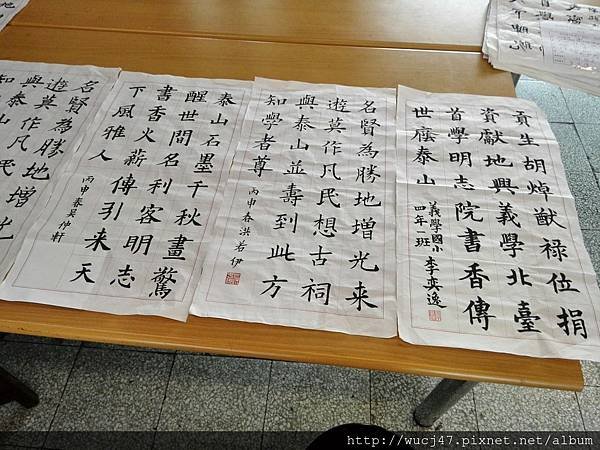 貢生胡焯猷祿位捐
資獻地興義學北臺
首學明志院書香傳
世麼泰山
義學國小
四年一班 李奕逸
名賢為勝地增光來
遊莫作凡民想古祠
與泰山並壽到此方
知學者尊
丙申春 洪若伊
泰山石墨千秋畫驚
醒世間名利客明志
書香火薪傳引來天
下風雅人
丙申春吳仲軒
名賢為勝地增光
遊莫作凡民
與泰山
知
http://wucj47.pixnet.net/album